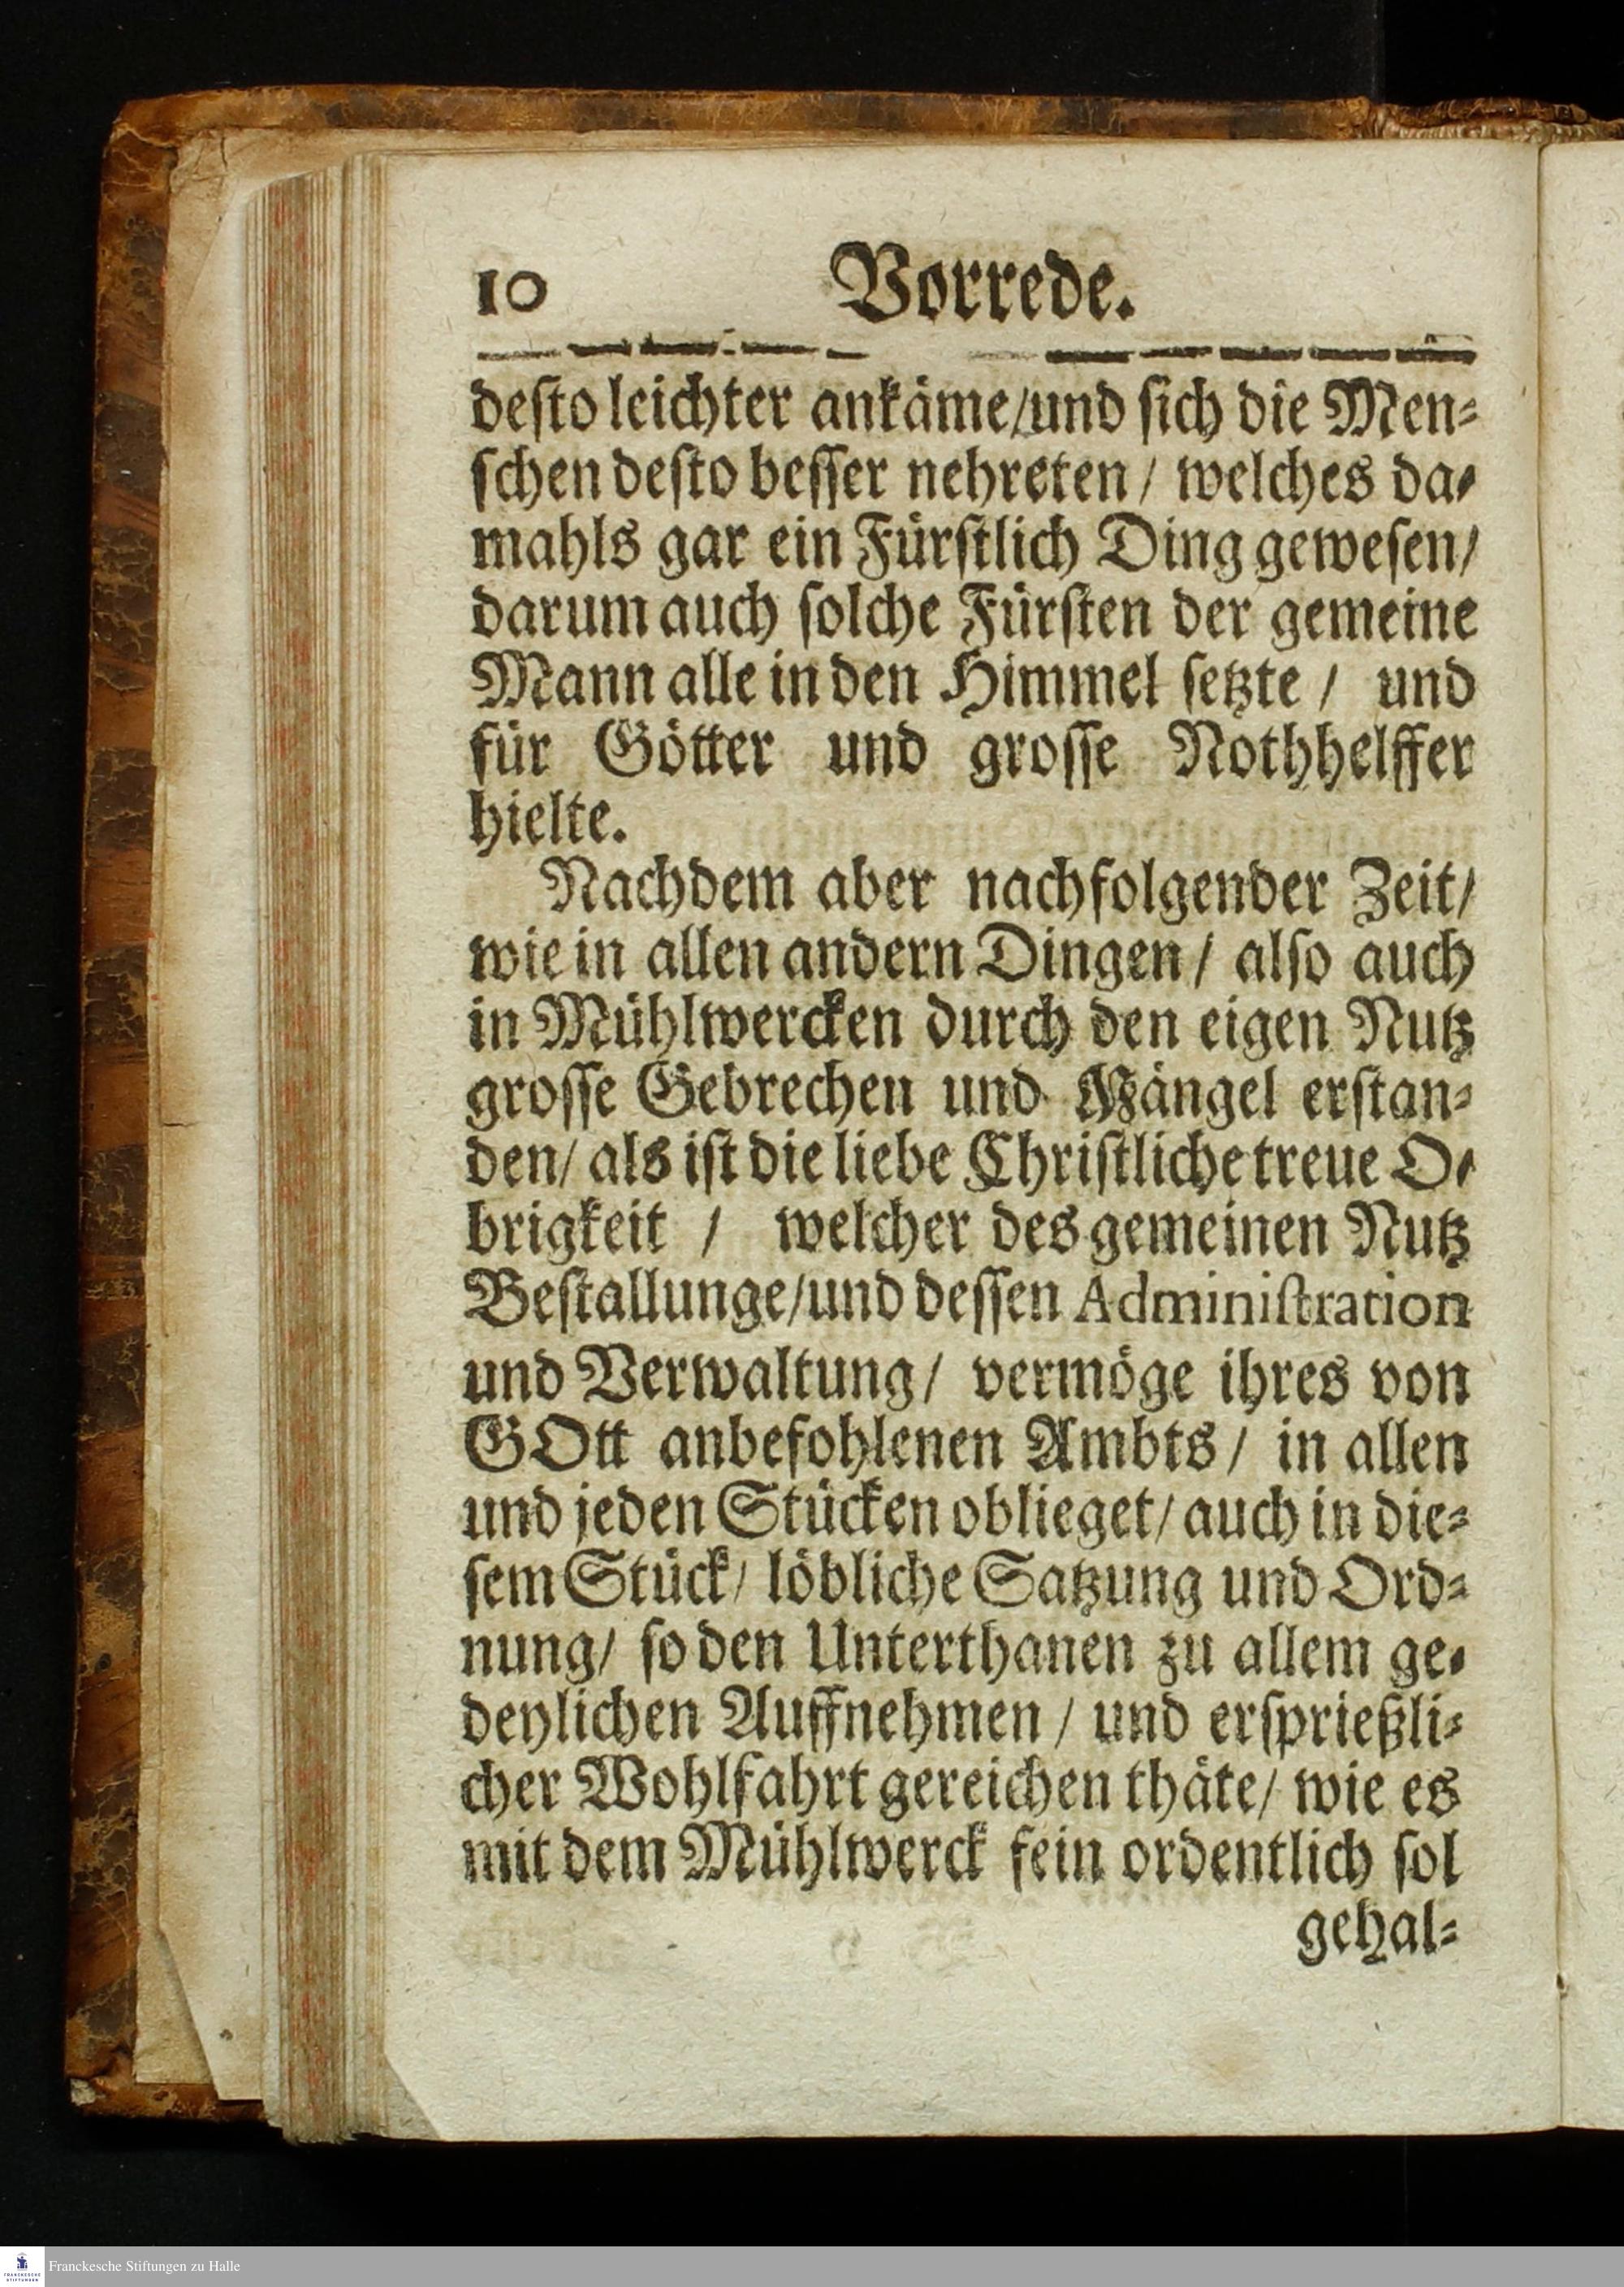 10 Vorrede.
desto leichter ankäme/und sich die Men-
schen desto besser nehreten / welches da-
mahls gar ein Fürstlich Ding gewesen/
darum auch solche Fürsten der gemeine
Mann alle in den Himmel setzte / und
für Götter und grosse Nothhelffer
hielte.
Nachdem aber nachfolgender Zeit/
wie in allen andern Dingen / also auch
in Mühlwercken durch den eigen Nutz
grosse Gebrechen und Mängel erstan-
den/ als ist die liebe Christliche treue O-
brigkeit / welcher des gemeinen Nutz
Bestallunge/und dessen Administration
und Verwaltung/ vermöge ihres von
GOtt anbefohlenen Ambts / in allen
und jeden Stücken oblieget/ auch in die-
sem Stück/ löbliche Satzung und Ord-
nung/ so den Unterthanen zu allem ge-
deylichen Auffnehmen / und ersprießli-
cher Wohlfahrt gereichen thäte/ wie es
mit dem Mühlwerck fein ordentlich sol
gehal-
Franckesche Stiftungen zu Halle
FRANCKESCHE
STIFTUNGEN